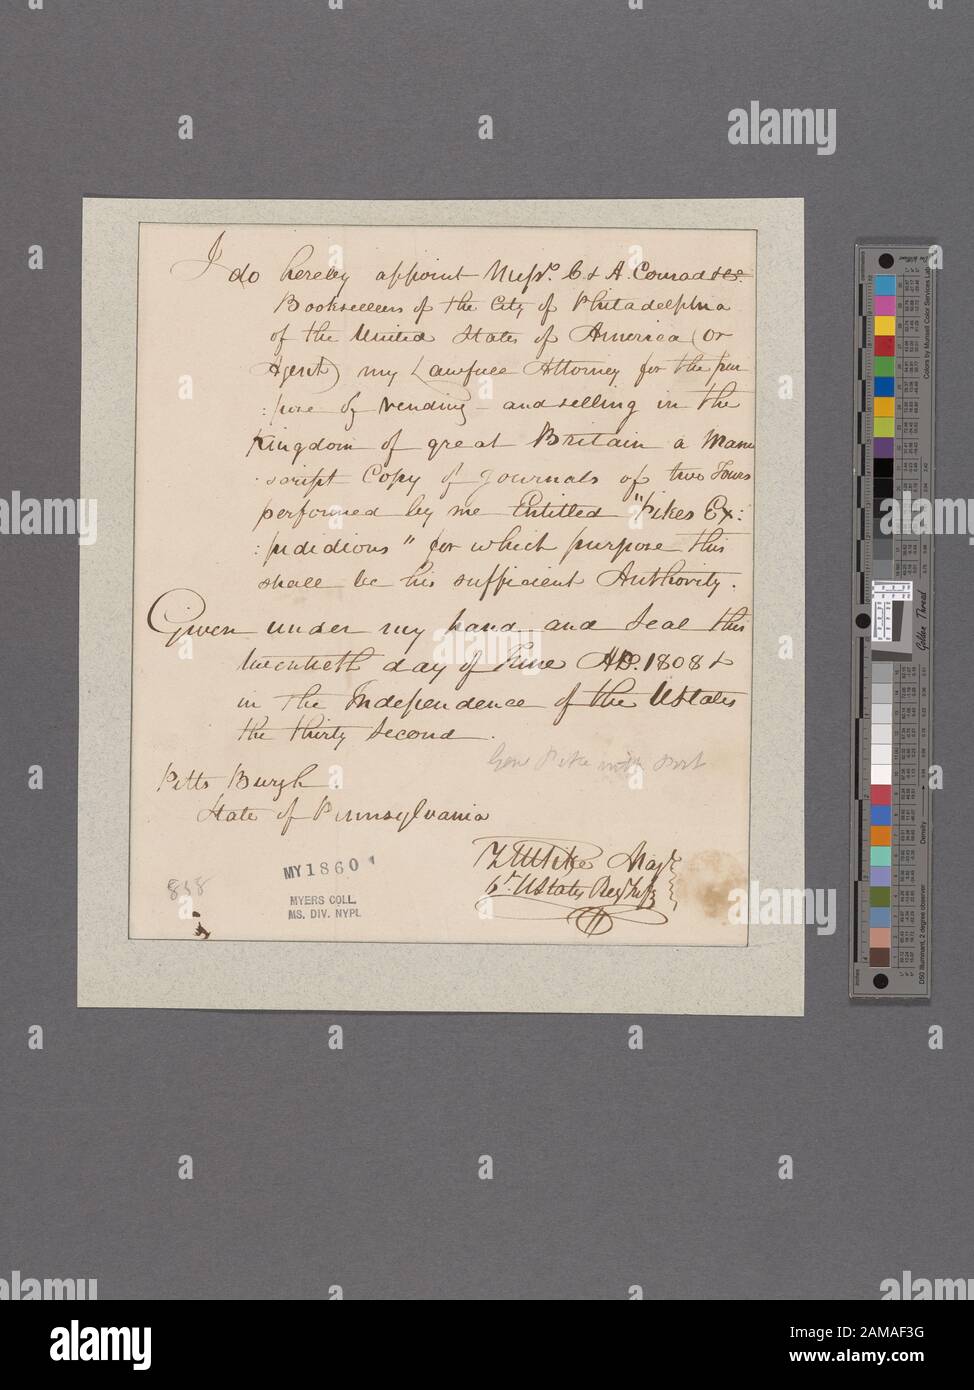 I do hereby appoint Messrs. C & A Conrad & Co.
Booksellers of the City of Philadelphia
of the United States of America (or
Agent) my Lawfull Attorney for the pur
:pose of vending and selling in the
Kingdom of great Britain a Manu
:script Copy of Journals of two Tours
performed by me Entitled "Pikes Ex:
:pididions" for which purpose this
shall be his sufficient Authority.
Given under my hand and Seal this
twentieth day of June AD. 1808 &
in the Independence of the UStates
the thirty Second.
Genl Pike with Port
Pitts Burgh.
State of Pennsylvania
Z M Pike Majr.
6th UStates Regt Infy
MY 1860
838
MYERS COLL.
MS. DIV. NYPL
Golden Thread
Colors by Munsell Color Services Lab
D50 Illuminant, 2 degree observer
Density
inches
a
alamy
alamy
Image ID: 2AMAF3G
www.alamy.com